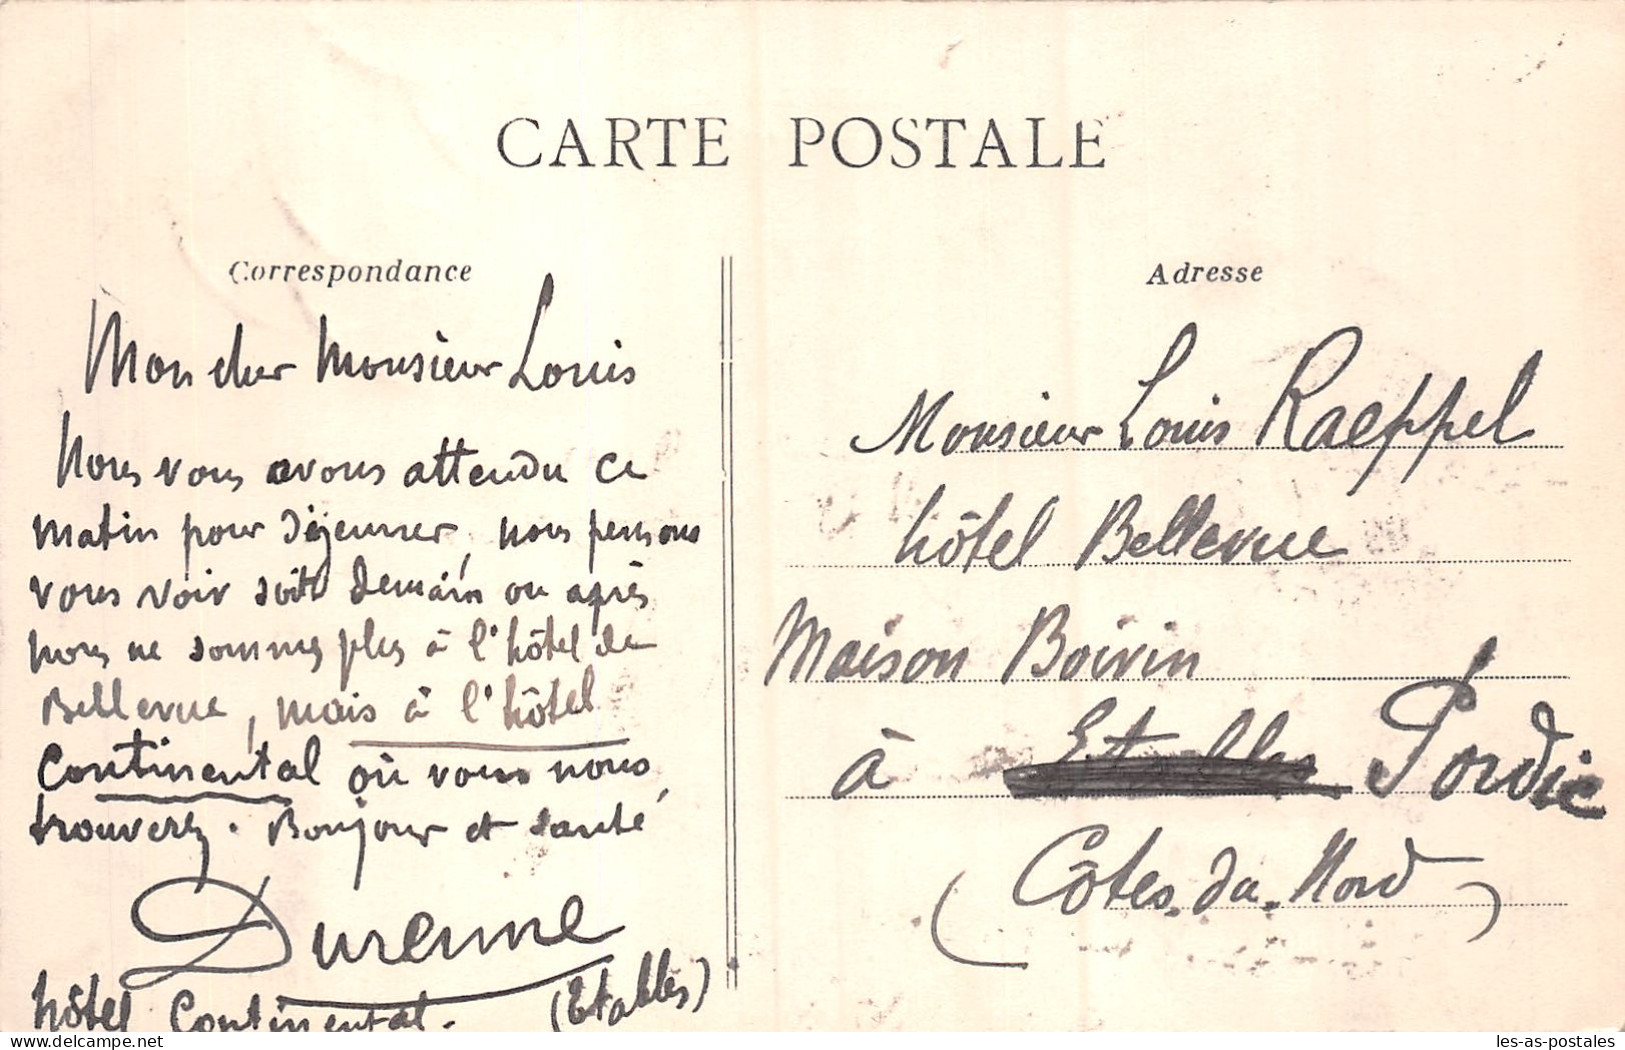 CARTE POSTALE
Correspondance
Mon cher Monsieur Louis
Nous vous avons attendu ce
matin pour déjeuner, nous pensons
vous voir soit demain ou après
nous ne sommes plus à l'hôtel de
Bellevue, mais à l'hôtel
Continental où vous nous
trouverez. Bonjour et santé
Durenne
hôtel Continental. (Etables)
Adresse
Monsieur Louis Raeppel
hôtel Bellevue
Maison Boivin
à Etables Pordic
(Côtes-du-Nord)
delcampe.net
les-as-postales